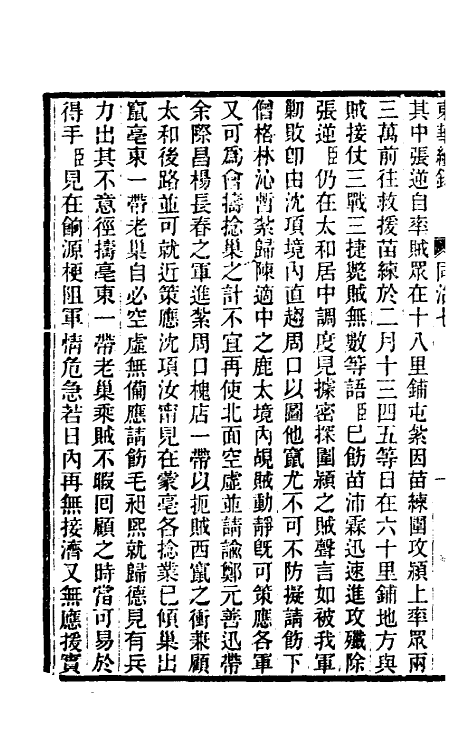 東華續錄　同治七　一
其中張逆自率賊眾在十八里鋪屯紮因苗練圍攻潁上率眾兩
三萬前往救援苗練於二月十三四五等日在六十里鋪地方與
賊接仗三戰三捷斃賊無數等語臣已飭苗沛霖迅速進攻殲除
張逆臣仍在太和居中調度見據密探圍潁之賊聲言如被我軍
勦敗卽由沈項境內直趨周口以圖他竄尤不可不防擬請飭下
僧格林沁暫紮歸陳適中之鹿太境內覘賊動靜旣可策應各軍
又可爲會擣捻巢之計不宜再使北面空虛並請諭鄭元善迅帶
余際昌楊長春之軍進紮周口槐店一帶以扼賊西竄之衝兼顧
太和後路並可就近策應沈項汝甯見在蒙亳各捻業已傾巢出
竄亳東一帶老巢自必空虛無備應請飭毛昶熙就歸德見有兵
力出其不意徑擣亳東一帶老巢乘賊不暇回顧之時當可易於
得手臣見在餉源梗阻軍情危急若日內再無接濟又無應援實